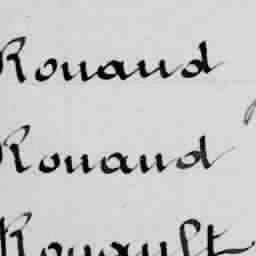 Rouaud
Rouaud
Rouault